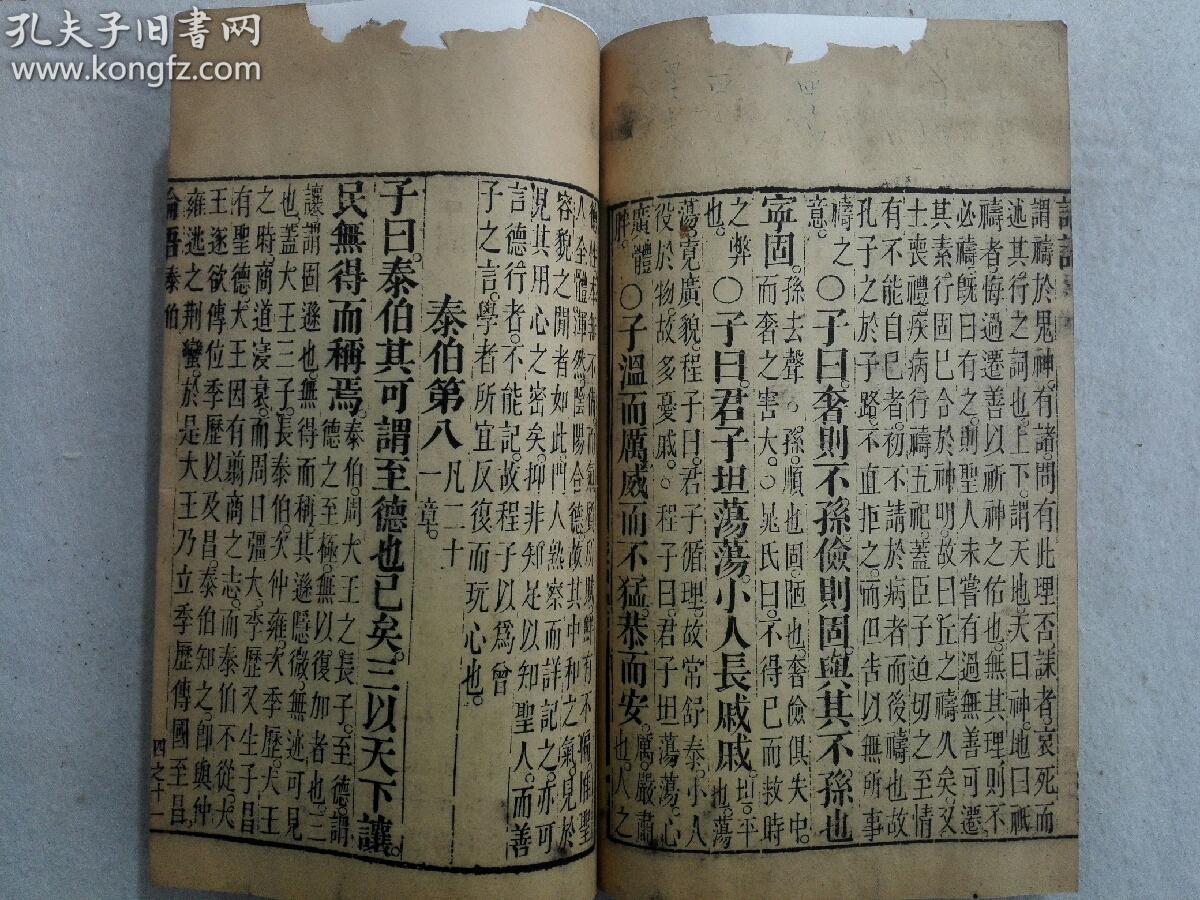 孔夫子旧书网
www.kongfz.com
謂禱於鬼神。有諸。問有此理否。誄者。哀死而
述其行之詞也。上下。謂天地。天曰神。地曰祇
禱者。悔過遷善以祈神之佑也。無其理。則不
必禱。旣曰有之。則聖人未嘗有過。無善可遷。
其素行。固已合於神明。故曰丘之禱久矣。又
士喪禮。疾病行禱五祀。蓋臣子迫切之至情
有不能自已者。初不請於病者而後禱也。故
孔子之於子路。不直拒之。而但告以無所事
禱之意。○子曰。奢則不孫。儉則固。與其不孫也
寧固。孫去聲。○孫。順也。固。陋也。奢儉俱失中。而奢之害大。○晁氏曰。不得已而救時
之弊也。○子曰。君子坦蕩蕩。小人長戚戚。坦。平也。蕩
蕩。寬廣貌。程子曰。君子循理。故常舒泰。小人
役於物。故多憂戚。○程子曰。君子坦蕩蕩。心
廣體胖。○子溫而厲。威而不猛。恭而安。厲。嚴肅也。人之
德性本無不備。而氣質所賦。鮮有不偏。惟聖
人全體渾然。陰陽合德。故其中和之氣。見於
容貌之閒者如此。門人熟察而詳記之。亦可
見其用心之密矣。抑非知足以知聖人。而善
言德行者。不能記。故程子以爲曾
子之言。學者所宜反復而玩心也。
泰伯第八 凡二十一章。
子曰。泰伯其可謂至德也已矣。三以天下讓。
民無得而稱焉。泰伯。周大王之長子。至德。謂德之至極。無以復加者也。三
讓。謂固遜也。無得而稱。其遜隱微。無迹可見
也。蓋大王三子。長泰伯。次仲雍。次季歷。大王
之時。商道寖衰。而周日彊大。季歷又生子昌
有聖德。大王因有翦商之志。而泰伯不從。大
王遂欲傳位季歷以及昌。泰伯知之。卽與仲
雍逃之荆蠻。於是大王乃立季歷。傳國至昌。
論語泰伯 四之十一